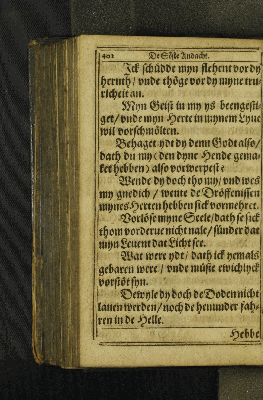 402 De Söste Andacht.
Ick schüdde myn flehent vor dy
heruth / vnde thöge vor dy myne tru-
richeit an.
Myn Geist in my ys beengesti-
get / vnde myn Herte in mynem Lyue
wil vorschmölten.
Behaget ydt dy denn Godt also /
dath du my (den dyne Hende gema-
ket hebben) also vorwerpest?
Wende dy doch tho my / vnd wes
my gnedich / wente de Dröffenissen
mynes Herten hebben sick vormehret.
Vorlöse myne Seele / dath se sick
thom vorderue nicht nale / sünder dat
myn Leuent dat Licht see.
Wat were ydt / dath ick yemals
gebaren were / vnde müste ewichlyck
vorstöt syn.
Dewyle dy doch de Doden nicht
lauen werden / noch de henunder fah-
ren in de Helle.
Hebbe